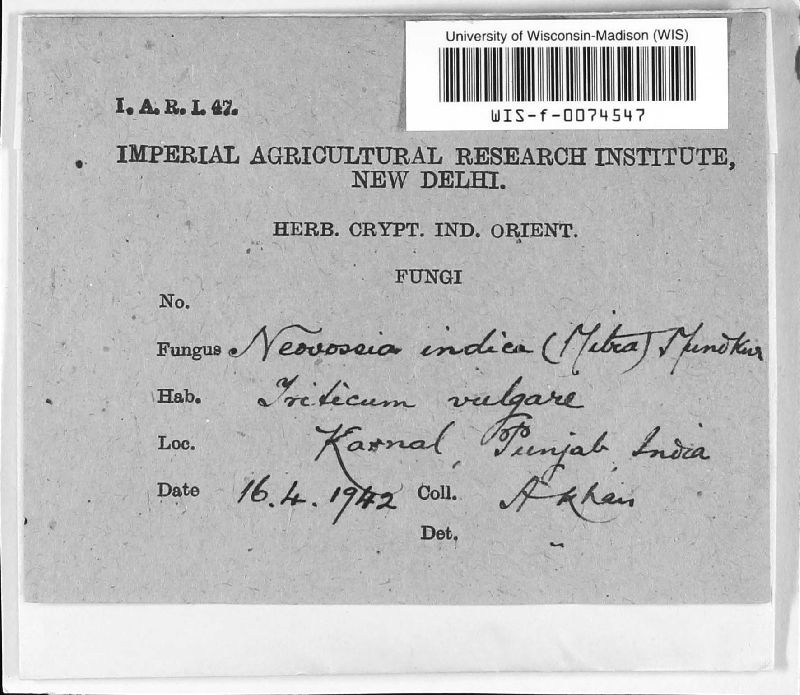 University of Wisconsin-Madison (WIS)
WIS-f-0074547
I. A. R. I. 47.
IMPERIAL AGRICULTURAL RESEARCH INSTITUTE,
NEW DELHI.
HERB. CRYPT. IND. ORIENT.
FUNGI
No.
Fungus Neovossia indica (Mitra) Mundkur
Hab. Triticum vulgare
Loc. Karnal, Punjab, India
Date 16.4.1942 Coll. A Khan
Det. "